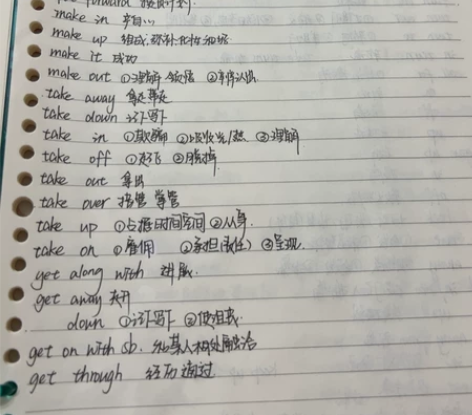 forward
make in
make up 组成,弥补,化妆,和好
make it 成功
make out ①理解 ②辨认出
take away 拿走
take down 记下
take in ①欺骗 ②吸收 ③理解
take off ①起飞 ②脱掉
take out 拿出
take over 接管 掌管
take up ①占据时间空间 ②从事.
take on ①雇佣 ②承担(责任) ③呈现.
get along with 进展.
get away 离开
down ①记下 ②使沮丧
get on with sb. 和某人相处融洽
get through 经历 通过